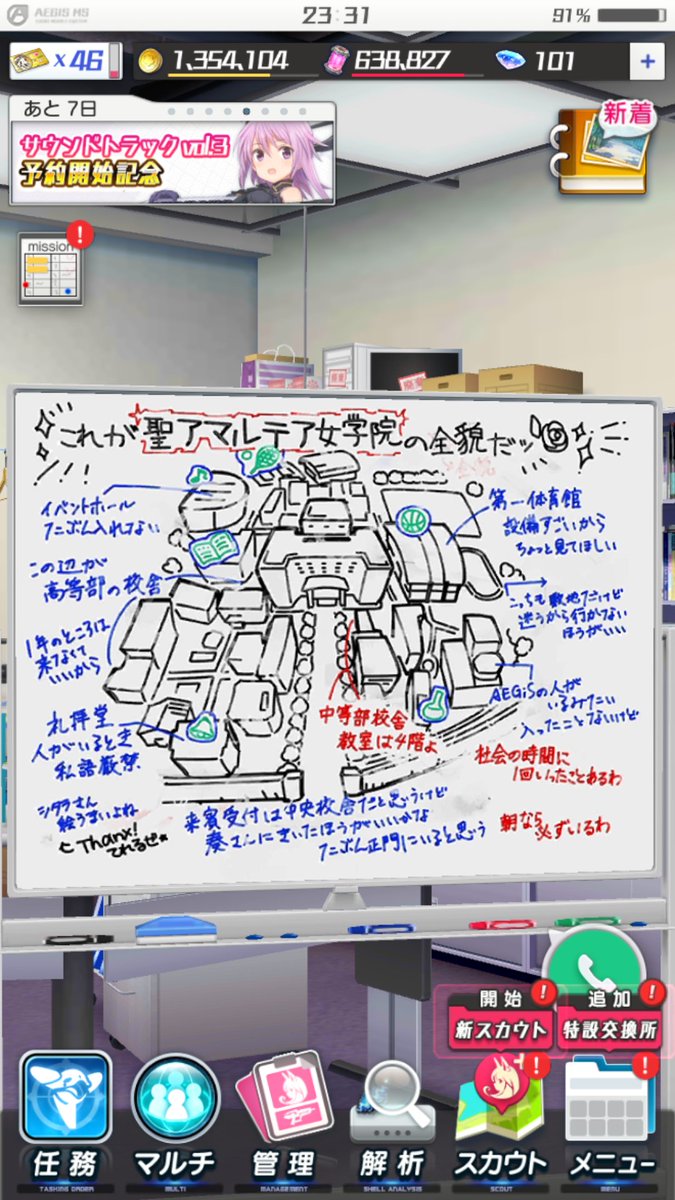 AEGIS MS
23:31
91%
×46
1,354,104
638,827
101
+
あと 7日
サウンドトラック vol.3
予約開始記念
新着
mission
!
これが聖アマルテア女学院の全貌だッ
イベントホール
たぶん入れない
この辺が
高等部の校舎
1年のところは
来なくて
いいから
礼拝堂
人がいるとき
私語厳禁
シタラさん
絵うまいよね
Thanx!
てれるぜ
第一体育館
設備すごいから
ちょっと見てほしい
こっちも敷地だけど
迷うから行かない
ほうがいい
AEGiSの人が
いるみたい
入ったことないけど
中等部校舎
教室は4階よ
社会の時間に
1回いったことあるわ
来賓受付は中央校舎だと思うけど
奏さんにきいたほうがいいかな
たぶん正門にいると思う
朝なら
必ずいるわ
開始
!
新スカウト
追加
!
特設交換所
!
!
任務
TASKING ORDER
マルチ
MULTI
管理
MANAGEMENT
解析
SHELL ANALYSIS
スカウト
SCOUT
メニュー
MENU